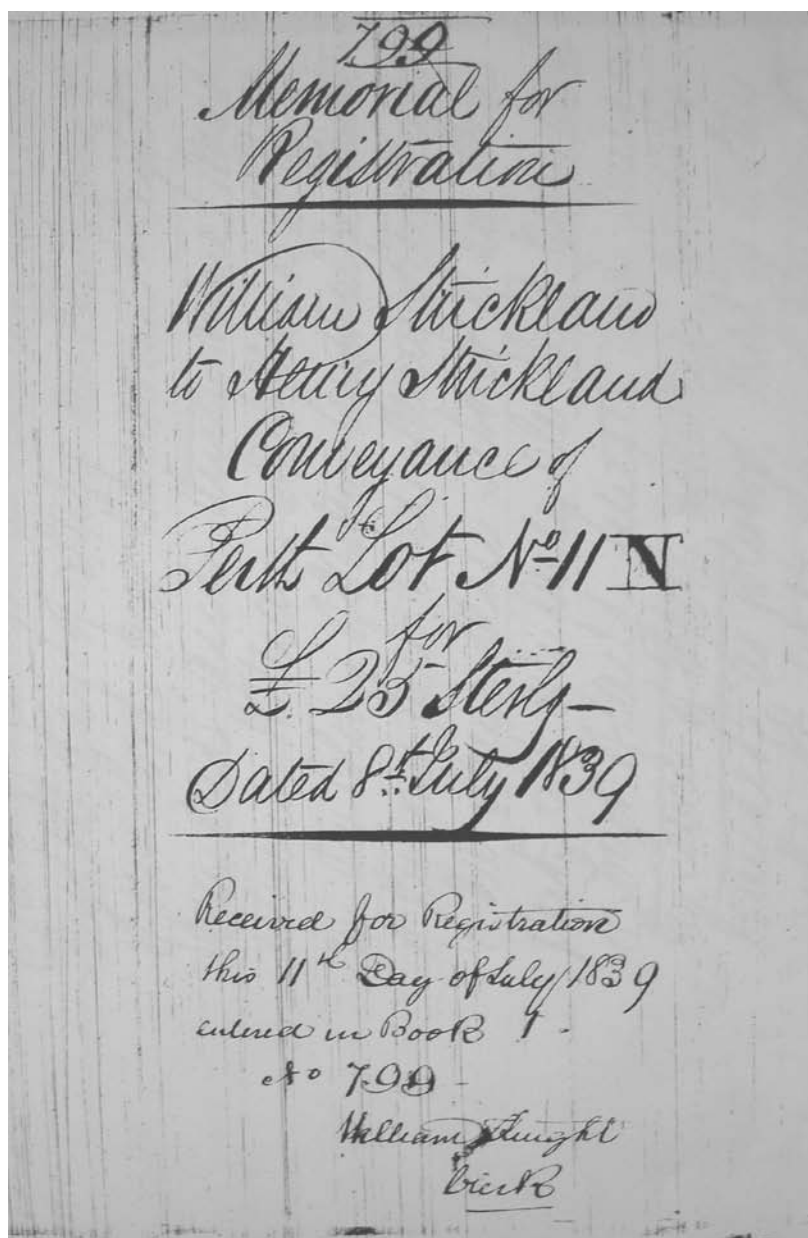 799
Memorial for
Registration
William Strickland
to Henry Strickland
Conveyance of
Perth Lot No 11 N
for
£ 25 Sterlg —
Dated 8th July 1839
Received for Registration
this 11th Day of July 1839
entered in Book 1 -
No 799 -
William Knight
Clerk